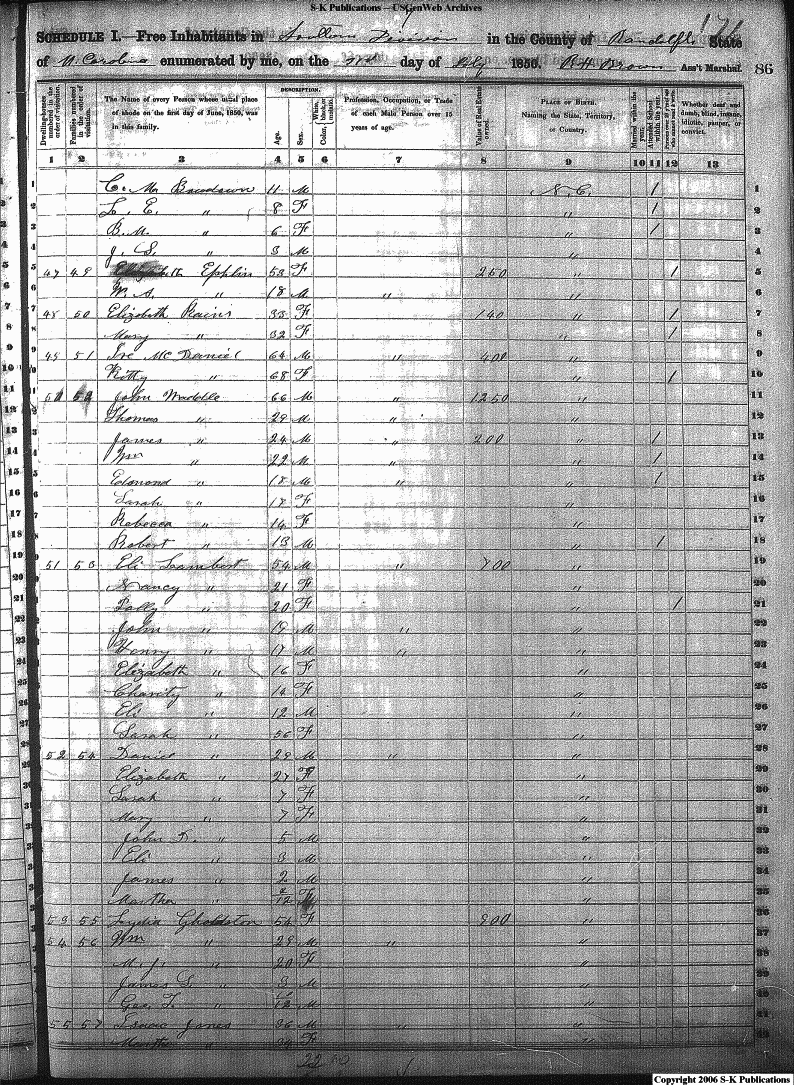 S-K Publications – USGenWeb Archives
SCHEDULE I.—Free Inhabitants in Southern Division in the County of Randolph State
of N. Carolina enumerated by me, on the day of July 1850. B H Brown Ass't Marshal. 86
DESCRIPTION.
Dwelling-houses numbered in the order of visitation. Families numbered in the order of visitation. The Name of every Person whose usual place of abode on the first day of June, 1850, was in this family. Age. Sex. Color, White, black, or mulatto. Profession, Occupation, or Trade of each Male Person over 15 years of age. Value of Real Estate owned. PLACE OF BIRTH. Naming the State, Territory, or Country. Married within the year. Attended School within the year. Whether deaf and dumb, blind, insane, idiotic, pauper, or convict.
1 2 3 4 5 6 7 8 9 10 11 12 13
1 C. M. 11 M N. C. / 1
2 L. E. " 8 F " / 2
3 B. M. " 6 F " / 3
4 J. S. " 3 M " 4
5 47 49 Elizabeth 53 F 250 " / 5
6 M. A. " 18 M " " 6
7 48 50 Elizabeth Rains 33 F 140 " / 7
8 Mary " 32 F " / 8
9 49 51 Ire McDaniel 64 M " 400 " 9
10 Kitty " 68 F " / 10
11 52 John 66 M " 1250 " 11
12 Thomas " 29 M " " 12
13 James " 24 M " 200 " / 13
14 Wm " 22 M " " / 14
15 Edmond " 18 M " " / 15
16 Sarah " 18 F " 16
17 Rebecca " 14 F " 17
18 Robert " 13 M " / 18
19 51 53 Eli Lambert 54 M " 700 " 19
20 Nancy " 21 F " 20
21 Polly " 20 F " / 21
22 John " 19 M " " 22
23 Henry " 17 M " " 23
24 Elizabeth " 16 F " 24
25 Charity " 14 F " 25
26 Eli " 12 M " 26
27 Sarah " 56 F " 27
28 52 54 Daniel " 29 M " " 28
29 Elizabeth " 27 F " 29
30 Sarah " 7 F " 30
31 Mary " 7 F " 31
John D. " 5 M " 32
Eli " 3 M " 33
James " 2 M " 34
Martha " /12 F " 35
53 55 Lydia Gholdston 54 F 900 " 36
54 56 Wm " 29 M " " 37
M. J. " 20 F " 38
James S. " 3 M " 39
Geo. T. " /12 M " 40
55 57 Isaac Jones 36 M " " 41
Martha " F " 42
Copyright 2006 S-K Publications